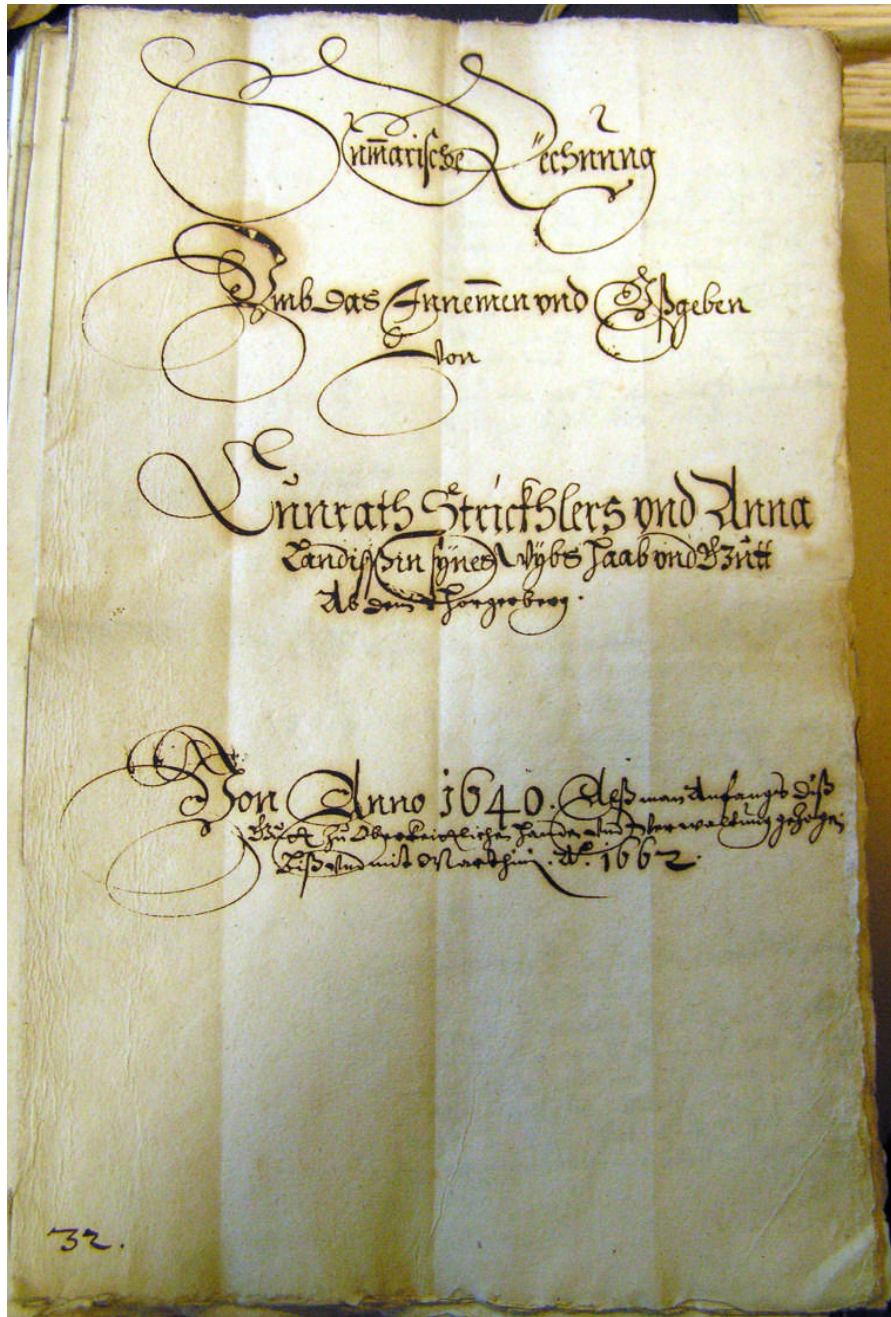 Sum̅arische Rechnung
Vmb das Innem̅en vnd Vßgeben
Von
Cunrath Strickhlers vnd Anna
Landissin synes Wybs Haab vnd Gütt
Ab dem Horgerberg.
Von Anno 1640. Alß man Anfangs diß
Gutt zu Oberkeitlichen Handen vnd Verwaltung gezogen,
Biß vnd mit Marthini. A.º 1662.
32.